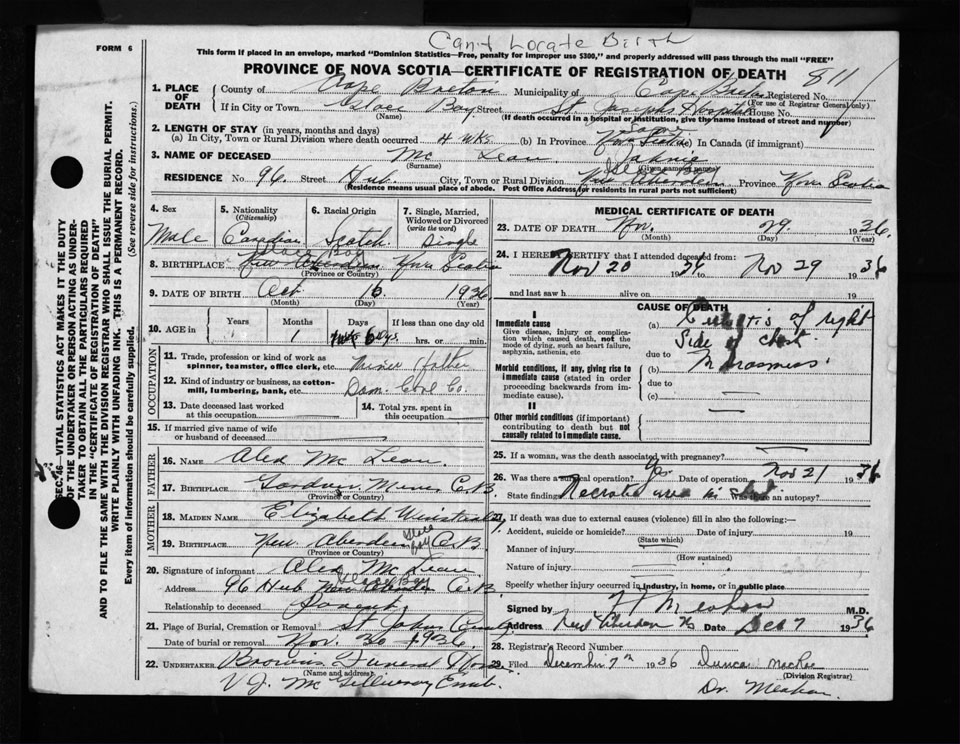 Cant Locate Birth
FORM 6
This form if placed in an envelope, marked "Dominion Statistics—Free, penalty for improper use $300," and properly addressed will pass through the mail "FREE"
PROVINCE OF NOVA SCOTIA—CERTIFICATE OF REGISTRATION OF DEATH
811
1. PLACE OF DEATH
County of Cape Breton Municipality of Cape Breton Registered No.
(For use of Registrar General only)
If in City or Town Glace Bay Street St Josephs Hospital House No.
(Name) (If death occurred in a hospital or institution, give the name instead of street and number)
2. LENGTH OF STAY (in years, months and days)
(a) In City, Town or Rural Division where death occurred 4 wks (b) In Province Nova Scotia (c) In Canada (if immigrant)
3. NAME OF DECEASED Mc Lean Johnie
(Surname) (Given name or names)
RESIDENCE No 96. Street Hub City, Town or Rural Division New Aberdeen Province Nova Scotia
Glace Bay
(Residence means usual place of abode. Post Office Address for residents in rural parts not sufficient)
4. Sex
Male
5. Nationality (Citizenship)
Canadian
6. Racial Origin
Scotch
7. Single, Married, Widowed or Divorced (write the word)
Single
8. BIRTHPLACE New Aberdeen Nova Scotia
Glace Bay
(Province or Country)
9. DATE OF BIRTH Oct 16 1936
(Month) (Day) (Year)
10. AGE in Years Months Days If less than one day old
1 hrs. or min.
OCCUPATION
11. Trade, profession or kind of work as spinner, teamster, office clerk, etc. Miner Father
12. Kind of industry or business, as cotton-mill, lumbering, bank, etc. Dom. Coal Co.
13. Date deceased last worked at this occupation
14. Total yrs. spent in this occupation
15. If married give name of wife or husband of deceased
FATHER
16. NAME Alex Mc Lean.
17. BIRTHPLACE Gardner Mines C.B.
(Province or Country)
MOTHER
18. MAIDEN NAME Elizabeth
19. BIRTHPLACE New Aberdeen C.B.
Glace Bay
(Province or Country)
20. Signature of informant Alex Mc Lean
Glace Bay
Address 96 Hub New Aberdeen C.B.
Relationship to deceased Parent
21. Place of Burial, Cremation or Removal St Johns
Date of burial or removal Nov. 30 1936
22. UNDERTAKER Browns Funeral Home
(Name and address)
V J. Mc Gillivray Emb.
MEDICAL CERTIFICATE OF DEATH
23. DATE OF DEATH Nov. 29 1936
(Month) (Day) (Year)
24. I HEREBY CERTIFY that I attended deceased from:
Nov 20 1936 to Nov 29 1936
and last saw h alive on 19
CAUSE OF DEATH
I
Immediate cause
Give disease, injury or complication which caused death, not the mode of dying, such as heart failure, asphyxia, asthenia, etc
(a) Cellulitis of right side of chest
due to
Morbid conditions, if any, giving rise to immediate cause (stated in order proceeding backwards from immediate cause).
(b) Marasmus
due to
(c)
II
Other morbid conditions (if important) contributing to death but not causally related to immediate cause.
25. If a woman, was the death associated with pregnancy?
26. Was there a surgical operation? Yes Date of operation Nov 21 1936
State findings Necrotic area in Was there an autopsy?
27. If death was due to external causes (violence) fill in also the following:—
Accident, suicide or homicide? Date of injury 19
(State which)
Manner of injury
(How sustained)
Nature of injury
Specify whether injury occurred in industry, in home, or in public place
Signed by M.D.
Address New Aberdeen NS Date Dec 7 1936
28. Registrar's Record Number
29. Filed December 7th 1936 Duncan MacRae
(Division Registrar)
Dr. Meahan.
SEC. 46— VITAL STATISTICS ACT MAKES IT THE DUTY OF THE UNDERTAKER OR PERSON ACTING AS UNDERTAKER TO OBTAIN ALL THE PARTICULARS REQUIRED IN THE "CERTIFICATE OF REGISTRATION OF DEATH" AND TO FILE THE SAME WITH THE DIVISION REGISTRAR WHO SHALL ISSUE THE BURIAL PERMIT.
WRITE PLAINLY WITH UNFADING INK. THIS IS A PERMANENT RECORD.
Every item of information should be carefully supplied. (See reverse side for instructions.)